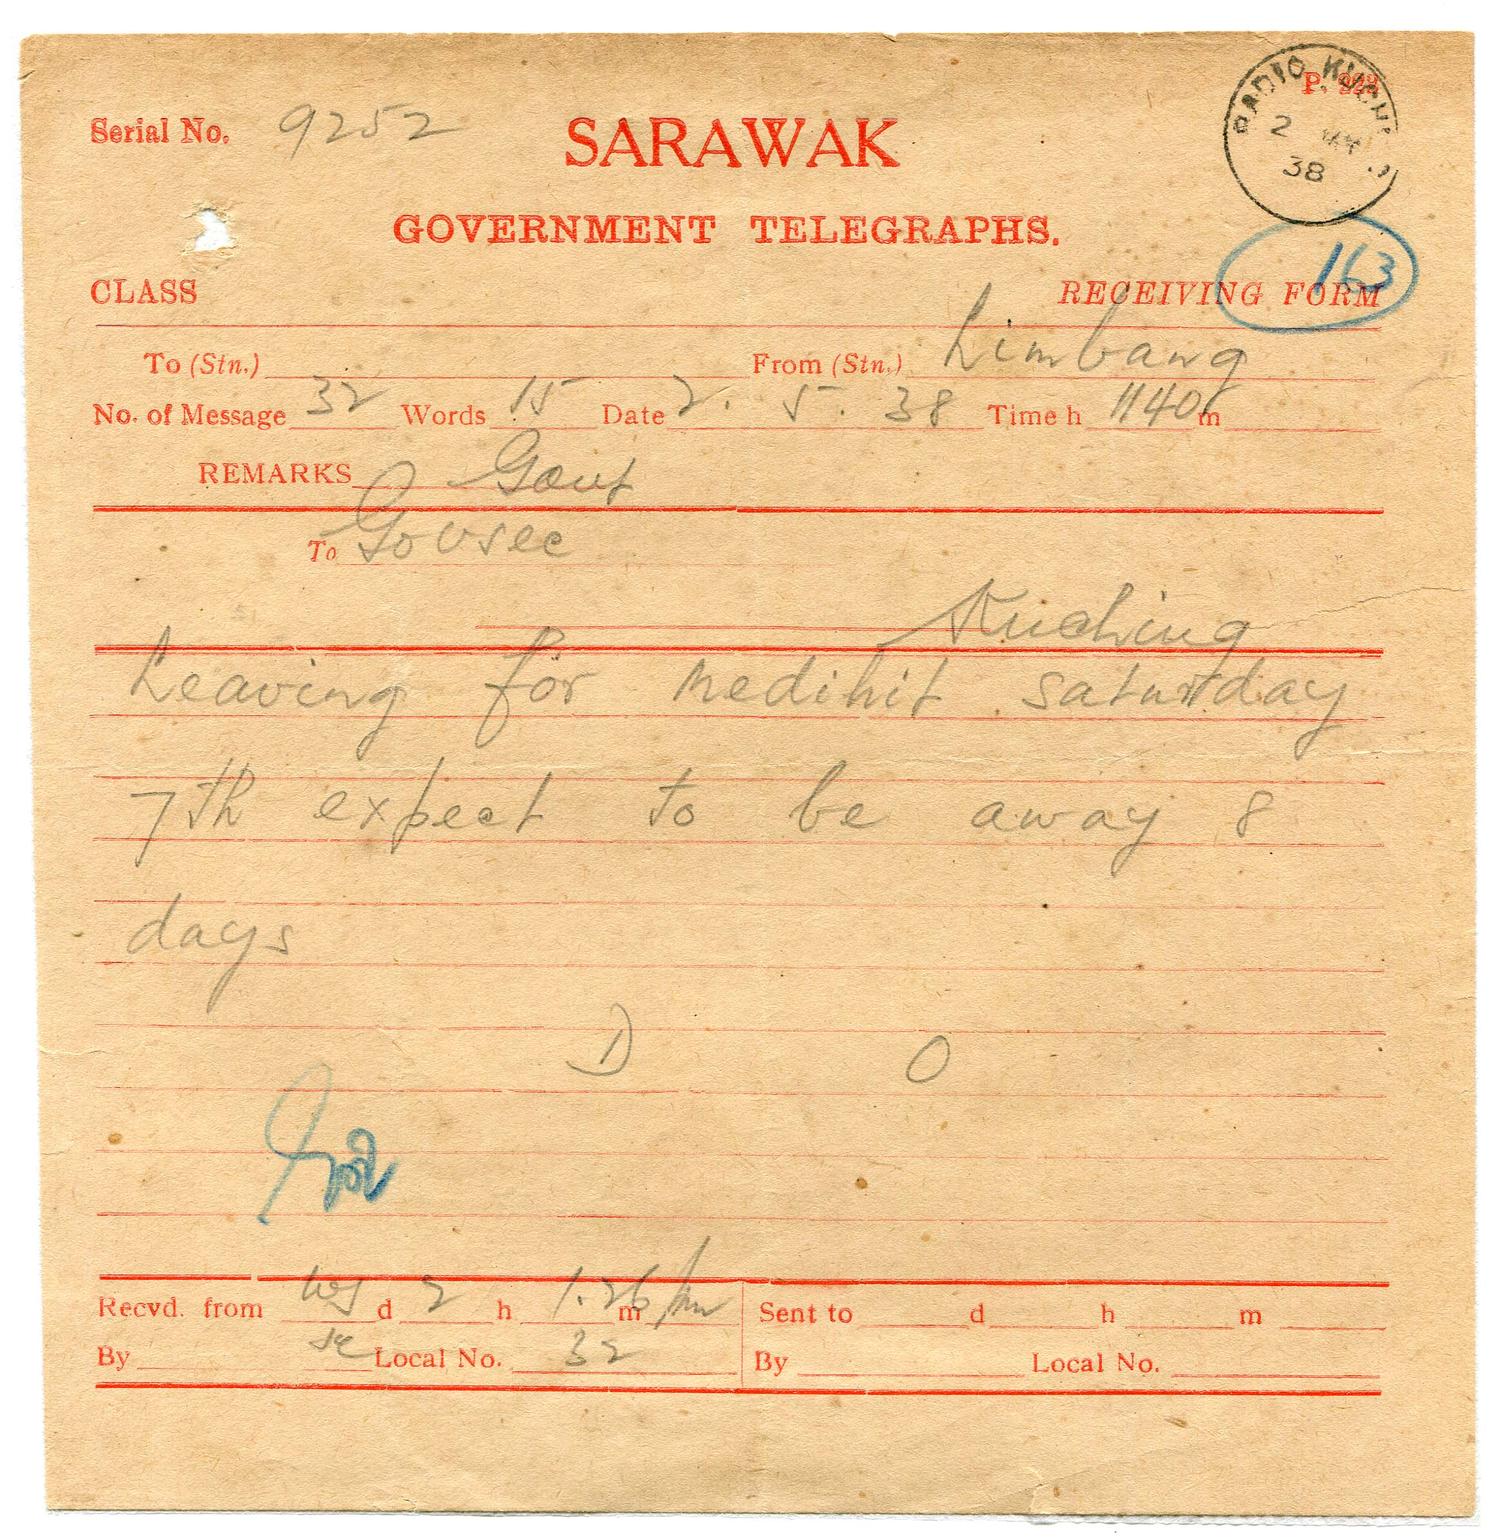 RADIO KUCHI
2 MY
38
P.
Serial No. 9252
SARAWAK
GOVERNMENT TELEGRAPHS.
163
CLASS
RECEIVING FORM
To (Stn.) From (Stn.) Limbang
No. of Message 32 Words 15 Date 2. 5. 38 Time h 1140 m
REMARKS Govt
To Govsec
Kuching
Leaving for Medihit saturday
7th expect to be away 8
days
D O
Recvd. from d 2 h 1.26 m pm Sent to d h m
By Local No. 32 By Local No.